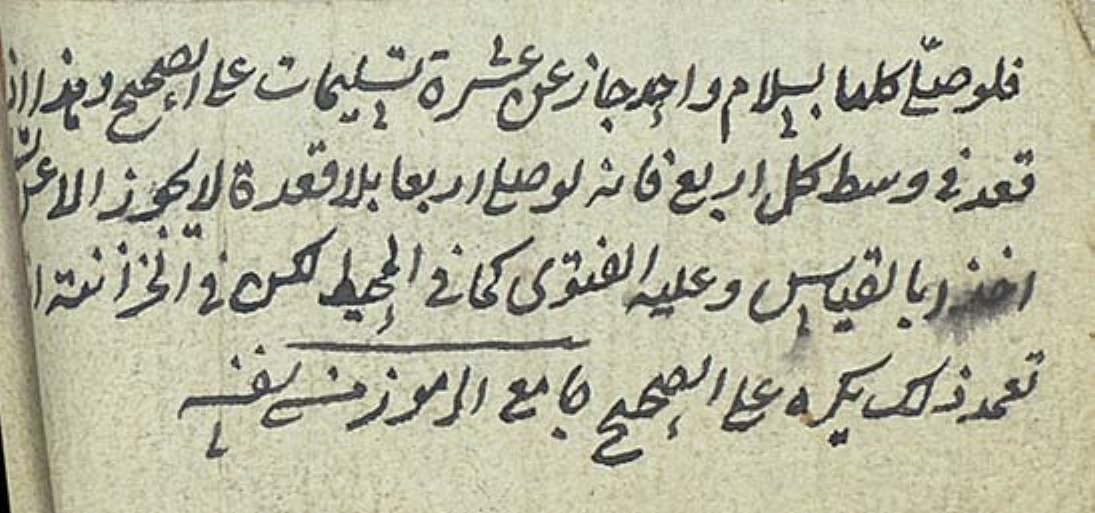 فلو صلّى كلها بسلام واحد جاز عن عشرة تسليمات على الصحيح وهذا اذا
قعد في وسط كل اربع فانه لو صلى اربعا بلا قعدة لا يجوز الا عن
اخذا بالقياس وعليه الفتوى كما في المحيط لكن في الخزانة ا
تعمد ذلك يكره على الصحيح جامع الرموز